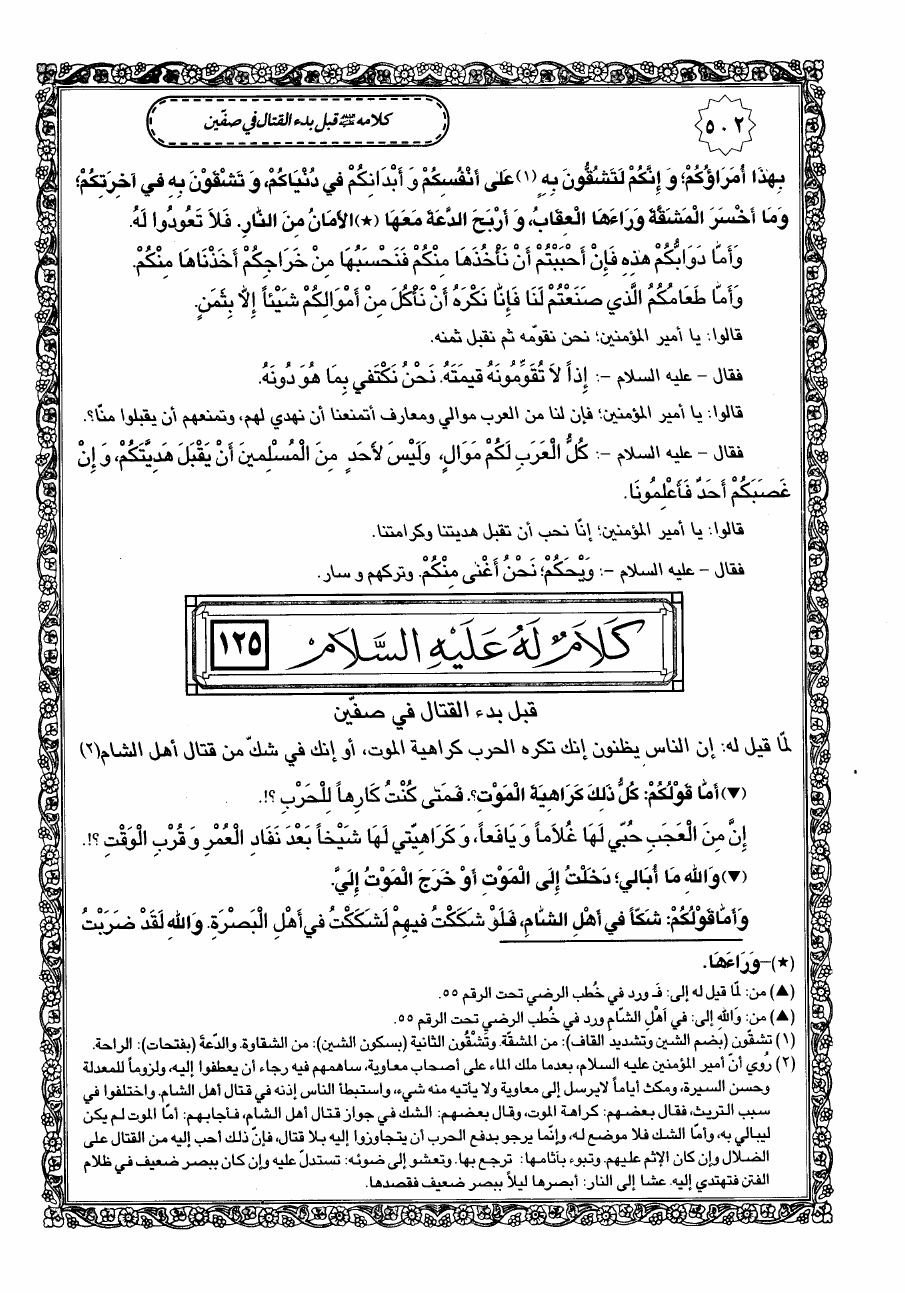 ٥٠٢
كلامه ﷺ قبل بدء القتال في صفّين
بِهٰذَا أُمَرَاؤُكُمْ؛ وَ إِنَّكُمْ لَتَشُقُّونَ بِهِ (١) عَلىٰ أَنْفُسِكُمْ وَ أَبْدَانِكُمْ في دُنْيَاكُمْ، وَ تَشْقَوْنَ بِهِ في آخِرَتِكُمْ؛
وَ مَا أَخْسَرَ الْمَشَقَّةَ وَرَاءَهَا الْعِقَابُ، وَ أَرْبَحَ الدَّعَةَ مَعَهَا (★) الأَمَانُ مِنَ النَّارِ. فَلاَ تَعُودُوا لَهُ.
وَ أَمَّا دَوَابُّكُمْ هٰذِهِ فَإِنْ أَحْبَبْتُمْ أَنْ نَأْخُذَهَا مِنْكُمْ فَنَحْسَبُهَا مِنْ خَرَاجِكُمْ أَخَذْنَاهَا مِنْكُمْ.
وَ أَمَّا طَعَامُكُمُ الَّذي صَنَعْتُمْ لَنَا فَإِنَّا نَكْرَهُ أَنْ نَأْكُلَ مِنْ أَمْوَالِكُمْ شَيْئاً إِلاَّ بِثَمَنٍ.
قالوا: يا أمير المؤمنين؛ نحن نقوّمه ثم نقبل ثمنه.
فقال - عليه السلام -: إِذاً لاَ تُقَوِّمُونَهُ قيمَتَهُ. نَحْنُ نَكْتَفي بِمَا هُوَ دُونَهُ.
قالوا: يا أمير المؤمنين؛ فإن لنا من العرب موالي ومعارف أتمنعنا أن نهدي لهم، وتمنعهم أن يقبلوا منّا؟.
فقال - عليه السلام -: كُلُّ الْعَرَبِ لَكُمْ مَوَالٍ، وَلَيْسَ لأَحَدٍ مِنَ الْمُسْلِمينَ أَنْ يَقْبَلَ هَدِيَّتَكُمْ، وَ إِنْ
غَصَبَكُمْ أَحَدٌ فَأَعْلِمُونَا.
قالوا: يا أمير المؤمنين؛ إنّا نحب أن تقبل هديتنا وكرامتنا.
فقال - عليه السلام -: وَيْحَكُمْ؛ نَحْنُ أَغْنىٰ مِنْكُمْ. وتركهم و سار.
كَلَامٌ لَهُ عَلَيْهِ السَّلَامُ
١٢٥
قبل بدء القتال في صفّين
لمّا قيل له: إن الناس يظنون إنك تكره الحرب كراهية الموت، أو إنك في شكّ من قتال أهل الشام (٢)
(▼) أَمَّا قَوْلُكُمْ: كُلُّ ذٰلِكَ كَرَاهِيَةَ الْمَوْتِ؟. فَمَتىٰ كُنْتُ كَارِهاً لِلْحَرْبِ ؟!.
إِنَّ مِنَ الْعَجَبِ حُبّي لَهَا غُلاَماً وَ يَافَعاً، وَ كَرَاهِيَّتي لَهَا شَيْخاً بَعْدَ نَفَادِ الْعُمُرِ وَ قُرْبِ الْوَقْتِ ؟!.
(▼) وَاللهِ مَا أُبَالي؛ دَخَلْتُ إِلَى الْمَوْتِ أَوْ خَرَجَ الْمَوْتُ إِلَيَّ.
وَ أَمَّا قَوْلُكُمْ: شَكّاً في أَهْلِ الشَّامِ، فَلَوْ شَكَكْتُ فيهِمْ لَشَكَكْتُ في أَهْلِ الْبَصْرَةِ. وَاللهِ لَقَدْ ضَرَبْتُ
(★)-وَرَاءَهَا.
(▲) من: لمّا قيل له إلى: فـ ورد في خُطب الرضي تحت الرقم ٥٥.
(▲) من: وَاللهِ إلى: في أَهْلِ الشّامِ ورد في خُطب الرضي تحت الرقم ٥٥.
(١) تشقّون (بضم الشين وتشديد القاف): من المشقّة. وتَشْقُون الثانية (بسكون الشين): من الشقاوة. والدّعةَ (بفتحات): الراحة.
(٢) رُوي أنّ أمير المؤمنين عليه السلام، بعدما ملك الماء على أصحاب معاوية، ساهمهم فيه رجاء أن يعطفوا إليه، ولزوماً للمعدلة
وحسن السيرة، ومكث أياماً لايرسل إلى معاوية ولا يأتيه منه شيء، واستبطأ الناس إذنه في قتال أهل الشام. واختلفوا في
سبب التريث، فقال بعضهم: كراهة الموت، وقال بعضهم: الشك في جواز قتال أهل الشام، فأجابهم: أمّا الموت لم يكن
ليبالي به، وأمّا الشك فلا موضع له، وإنّما يرجو بدفع الحرب أن يتجاوزوا إليه بلا قتال، فإنّ ذلك أحب إليه من القتال على
الضلال وإن كان الإثم عليهم. وتبوء بآثامها: ترجع بها. وتعشو إلى ضوئه: تستدلّ عليه وإن كان ببصر ضعيف في ظلام
الفتن فتهتدي إليه. عشا إلى النار: أبصرها ليلاً ببصر ضعيف فقصدها.